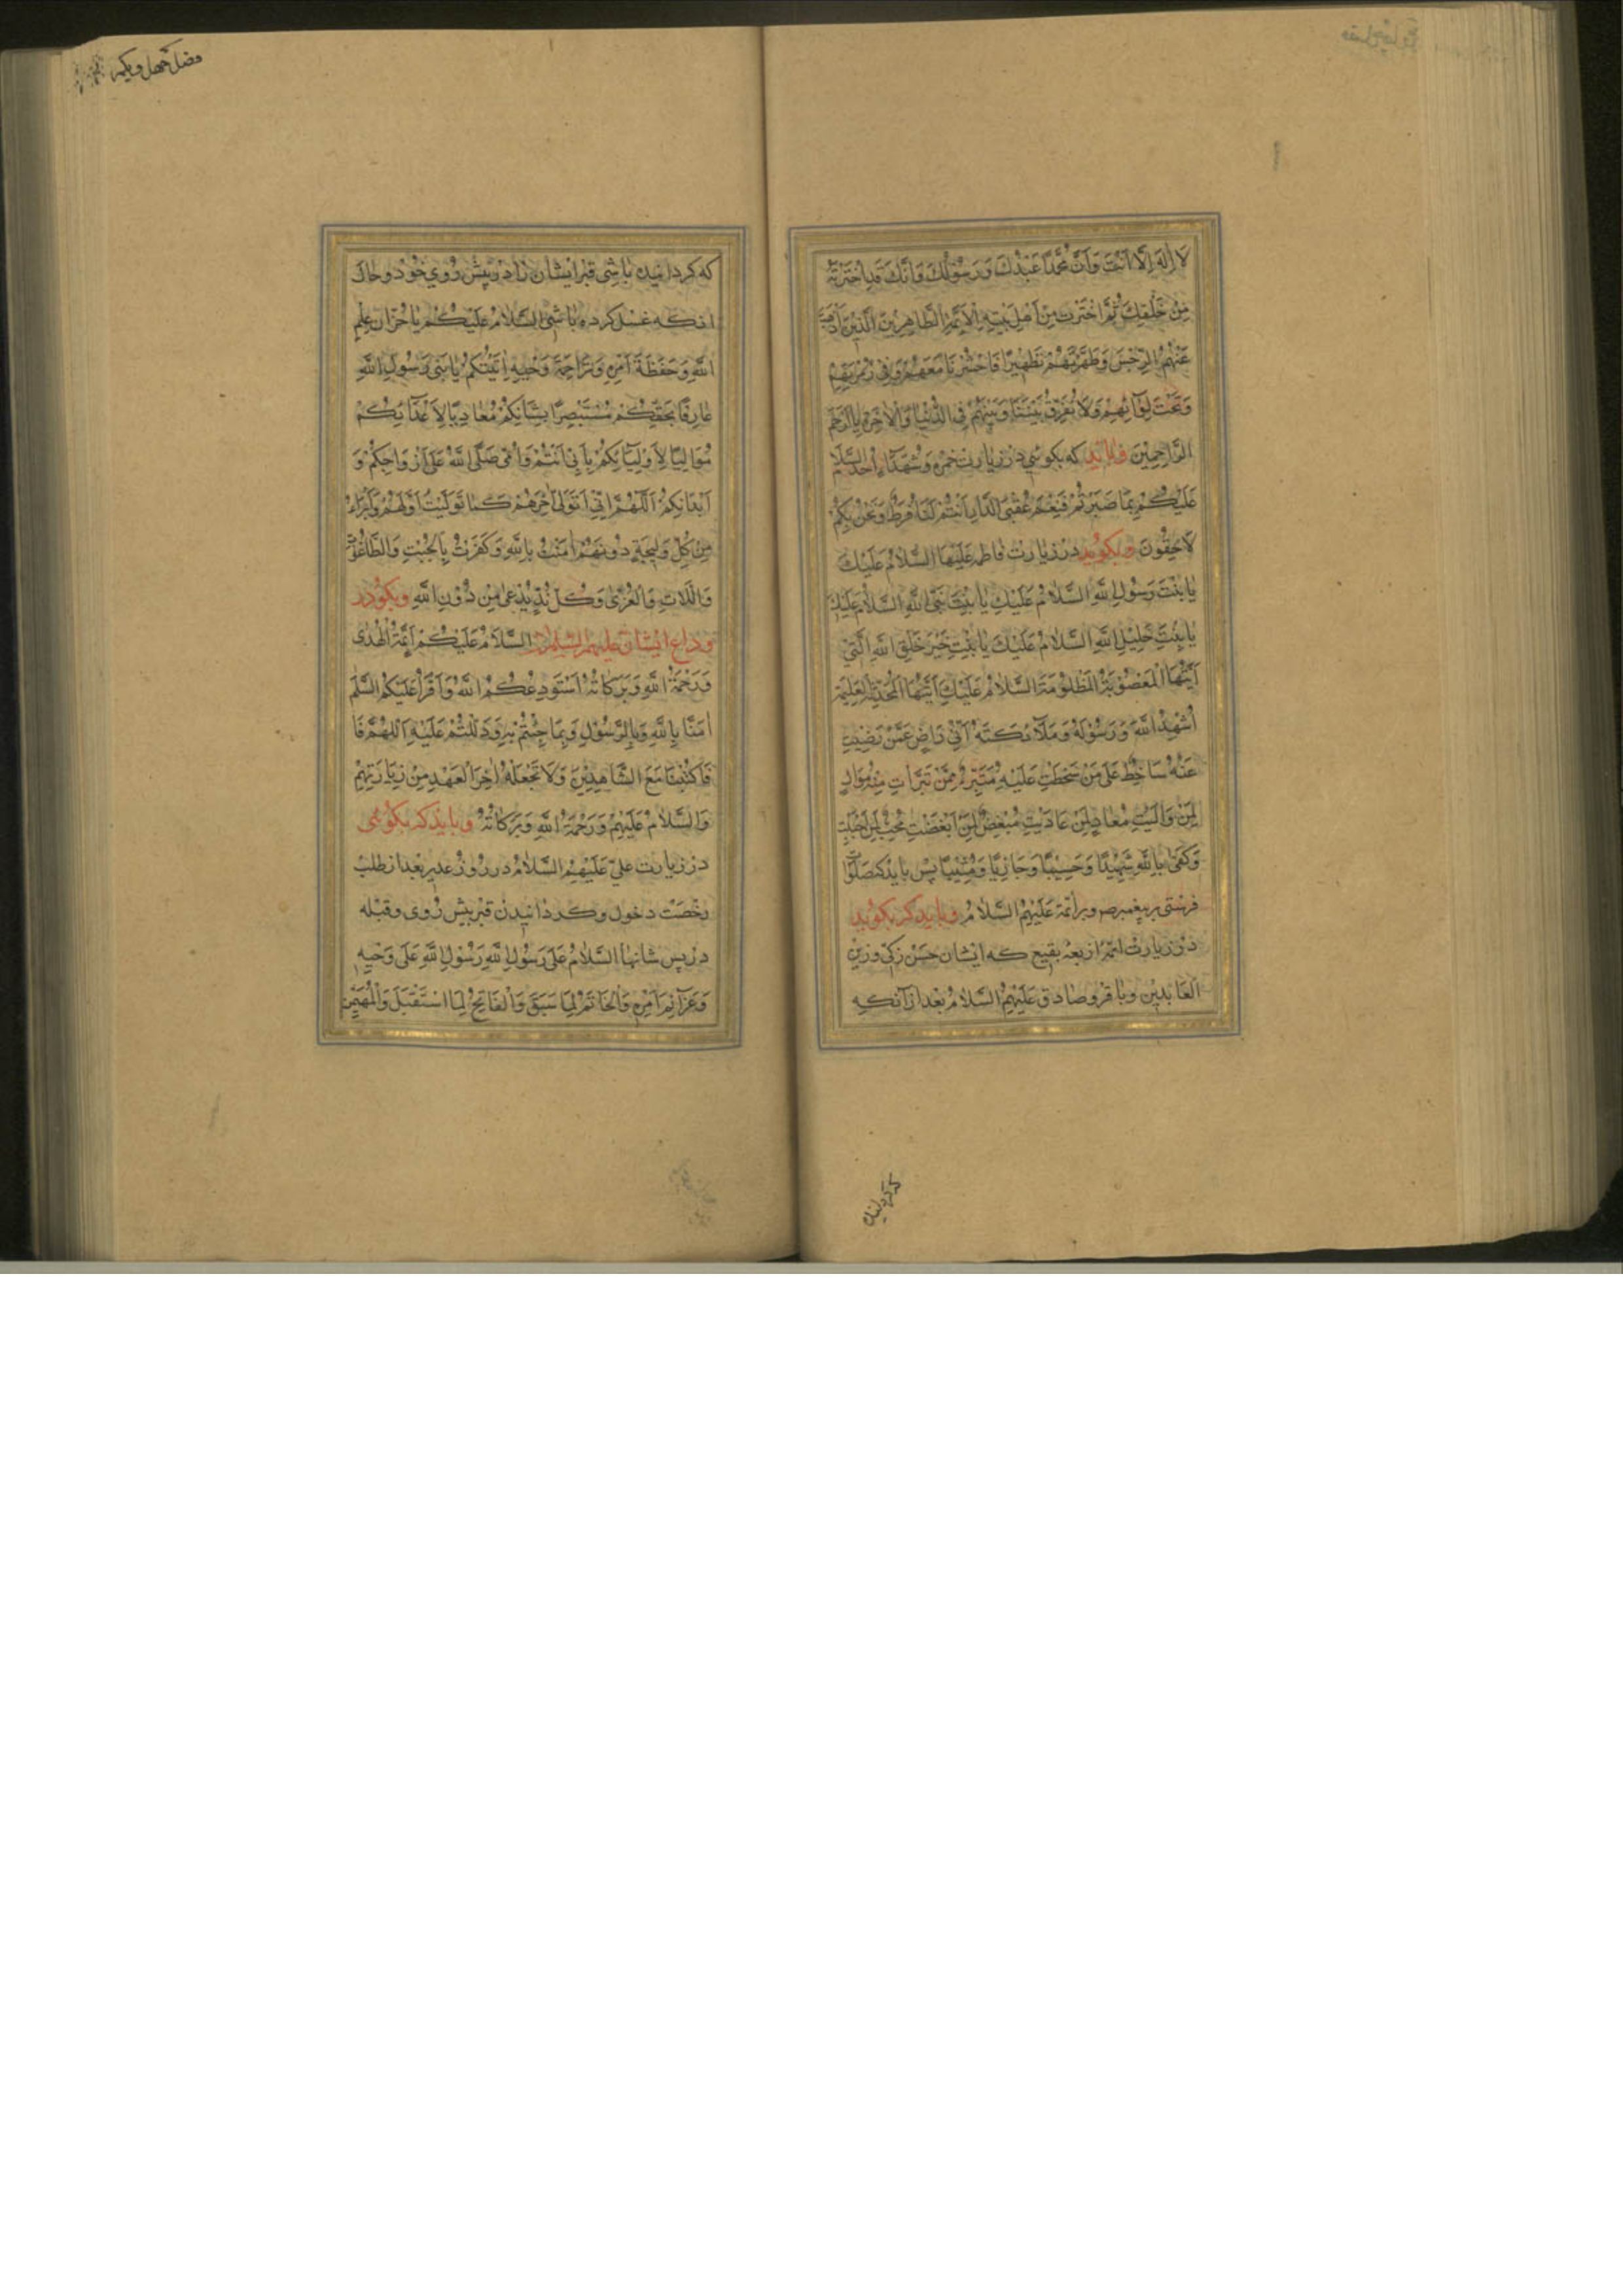 لَا اِلٰهَ اِلَّا اَنْتَ وَاَنَّ مُحَمَّدًا عَبْدُكَ وَرَسُوْلُكَ وَاَنَّكَ قَدِ اخْتَرْتَهُ
مِنْ خَلْقِكَ ثُمَّ اخْتَرْتَ مِنْ اَهْلِ بَيْتِهِ الْاَئِمَّةَ الطَّاهِرِيْنَ الَّذِيْنَ اَذْهَبْتَ
عَنْهُمُ الرِّجْسَ وَطَهَّرْتَهُمْ تَطْهِيْرًا فَاحْشُرْنَا مَعَهُمْ وَفِيْ زُمْرَتِهِمْ
وَتَحْتَ لِوَائِهِمْ وَلَا تُفَرِّقْ بَيْنَنَا وَبَيْنَهُمْ فِي الدُّنْيَا وَالْاٰخِرَةِ يَا اَرْحَمَ
الرَّاحِمِيْنَ و بايد كه بكوئي در زيارت حمزه وشهداء احد السلام
عَلَيْكُمْ بِمَا صَبَرْتُمْ فَنِعْمَ عُقْبَى الدَّارِ اَنْتُمْ لَنَا فَرَطٌ وَنَحْنُ بِكُمْ
لَاحِقُوْنَ وبكويد در زيارت فاطمه عليها السلام السَّلَامُ عَلَيْكَ
يَا بِنْتَ رَسُوْلِ اللّٰهِ السَّلَامُ عَلَيْكِ يَا بِنْتَ نَبِيِّ اللّٰهِ السَّلَامُ عَلَيْكِ
يَا بِنْتَ خَلِيْلِ اللّٰهِ السَّلَامُ عَلَيْكَ يَا بِنْتَ خَيْرِ خَلْقِ اللّٰهِ
اَيَّتُهَا الْمَظْلُوْمَةُ السَّلَامُ عَلَيْكِ اَيَّتُهَا الْمُحَدَّثَةُ الْعَلِيْمَةُ
اُشْهِدُ اللّٰهَ وَرَسُوْلَهُ وَمَلَآئِكَتَهُ اَنِّيْ رَاضٍ عَمَّنْ رَضِيْتِ
عَنْهُ سَاخِطٌ عَلٰى مَنْ سَخَطْتِ عَلَيْهِ مُتَبَرِّئٌ مِمَّنْ تَبَرَّأْتِ مِنْهُ مُوَالٍ
لِمَنْ وَالَيْتِ مُعَادٍ لِمَنْ عَادَيْتِ مُبْغِضٌ لِمَنْ اَبْغَضْتِ مُحِبٌّ لِمَنْ اَحْبَبْتِ
وَكَفٰى بِاللّٰهِ شَهِيْدًا وَحَسِيْبًا وَجَازِيًا وَمُثِيْبًا پس بايد كه صلوات
فرستى بر پيغمبر ص وبر ائمه عَلَيْهِمُ السَّلَامُ و بايد كه بكويد
در زيارت ائمه اربعه بقيع كه ايشان حسن زكى وزين
العابدين وباقر وصادق عَلَيْهِمُ السَّلَامُ بعد از آنكه
فصل چهل ويكم
كه كردانيده باشى قبر ايشان را در پيش روى خود و حال
انكه غسل كرده باشى السَّلَامُ عَلَيْكُمْ يَا خُزَّانَ عِلْمِ
اللّٰهِ وَحَفَظَةَ اَمْرِهِ وَتَرَاجِمَةَ وَحْيِهِ اَتَيْتُكُمْ يَا بَنِيْ رَسُوْلِ اللّٰهِ
عَارِفًا بِحَقِّكُمْ مُسْتَبْصِرًا بِشَأْنِكُمْ مُعَادِيًا لِاَعْدَائِكُمْ
مُوَالِيًا لِاَوْلِيَائِكُمْ بِاَبِيْ اَنْتُمْ وَاُمِّيْ صَلَّى اللّٰهُ عَلٰى اَرْوَاحِكُمْ وَ
اَبْدَانِكُمْ اَللّٰهُمَّ اِنِّيْ اَتَوَلّٰى اٰخِرَهُمْ كَمَا تَوَلَّيْتُ اَوَّلَهُمْ وَاَبْرَءُ
مِنْ كُلِّ وَلِيْجَةٍ دُوْنَهُمْ اٰمَنْتُ بِاللّٰهِ وَكَفَرْتُ بِالْجِبْتِ وَالطَّاغُوْتِ
وَاللَّاتِ وَالْعُزّٰى وَكُلِّ نِدٍّ يُدْعٰى مِنْ دُوْنِ اللّٰهِ وبكو در
وداع ايشان عليهم السلام السَّلَامُ عَلَيْكُمْ اَئِمَّةَ الْهُدٰى
وَرَحْمَةُ اللّٰهِ وَبَرَكَاتُهُ اَسْتَوْدِعُكُمُ اللّٰهَ وَاَقْرَأُ عَلَيْكُمُ السَّلَمَ
اٰمَنَّا بِاللّٰهِ وَبِالرَّسُوْلِ وَبِمَا جِئْتُمْ بِهِ وَدَلَلْتُمْ عَلَيْهِ اَللّٰهُمَّ فَا
فَاكْتُبْنَا مَعَ الشَّاهِدِيْنَ وَلَا تَجْعَلْهُ اٰخِرَ الْعَهْدِ مِنْ زِيَارَتِهِمْ
وَالسَّلَامُ عَلَيْهِمْ وَرَحْمَةُ اللّٰهِ وَبَرَكَاتُهُ و بايد كه بكوئى
در زيارت على عَلَيْهِمُ السَّلَامُ در روز غدير بعد از طلب
رخصت دخول وكردانيدن قبر پيش روى وقبله
در پس شانها السَّلَامُ عَلٰى رَسُوْلِ اللّٰهِ رَسُوْلِ اللّٰهِ عَلٰى وَحْيِهِ
وَعَزَآئِمِ اَمْرِهِ وَالْخَاتَمِ لِمَا سَبَقَ وَالْفَاتِحِ لِمَا اسْتَقْبَلَ وَالْمُهَيْمِنِ